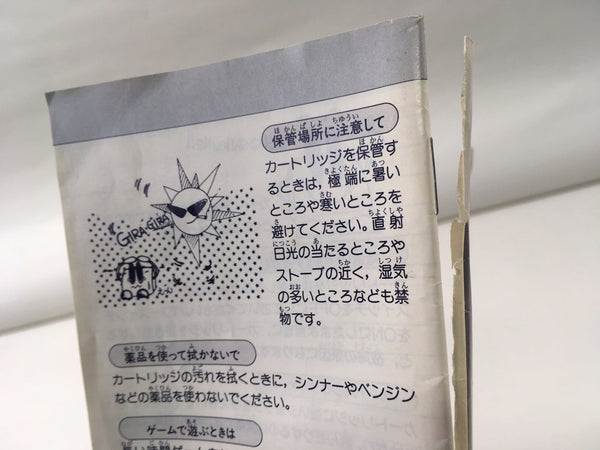 保管場所に注意して
カートリッジを保管す
るときは，極端に暑い
ところや寒いところを
避けてください。直射
日光の当たるところや
ストーブの近く，湿気
の多いところなども禁
物です。
GIRA-GIRA
薬品を使って拭かないで
カートリッジの汚れを拭くときに，シンナーやベンジン
などの薬品を使わないでください。
ゲームで遊ぶときは